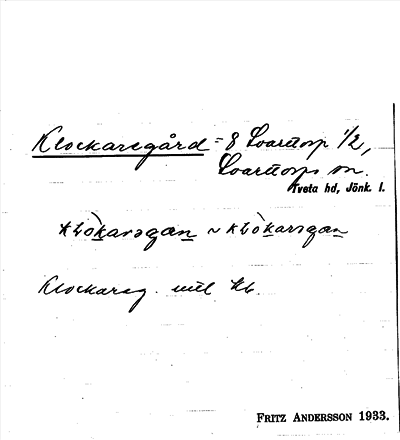 Klockaregård = 8 Svarttorp 1/2,
Svarttorps sn.
Tveta hd, Jönk. l.
Klockareg. enl kb.
FRITZ ANDERSSON 1933.